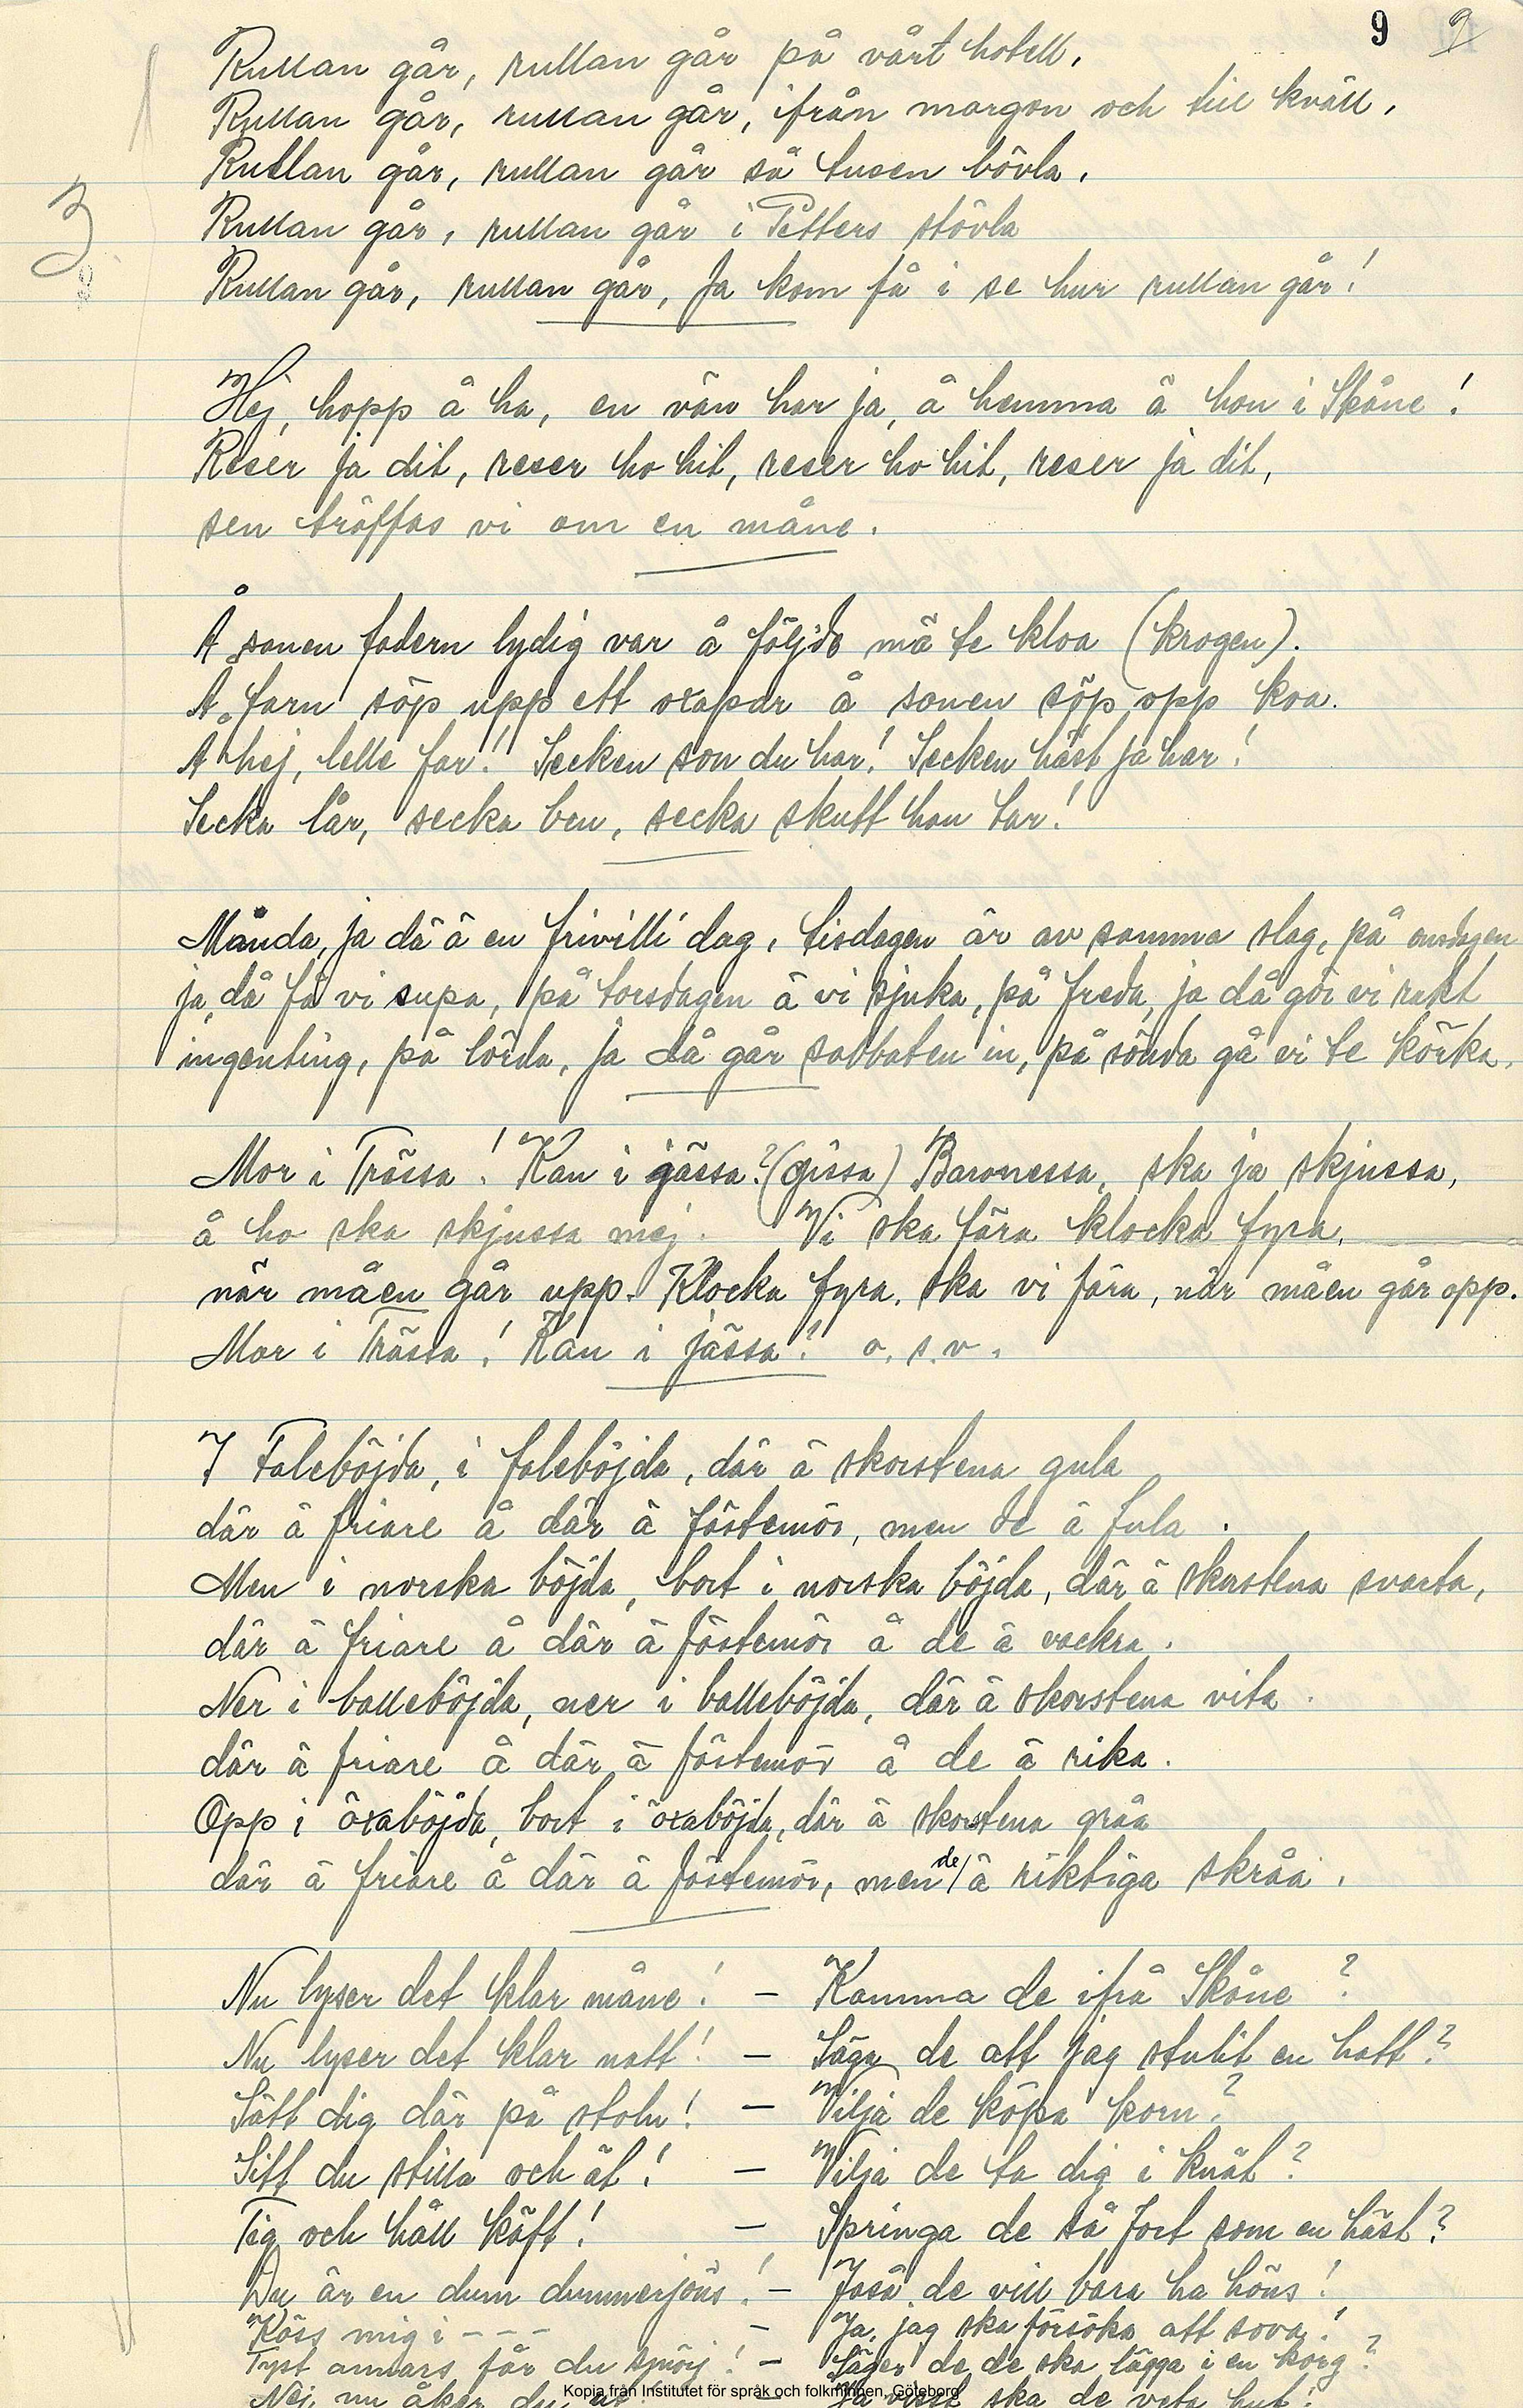 9 9
Rullan går, rullan går på vårt hotell,
Rullan går, rullan går, ifrån morgon och till kväll,
Rullan går, rullan går så tusen bövla,
3
Rullan går, rullan går i Petters stövla
Rullan går, rullan går, Ja kom få i se hur rullan går!
Hej, hopp å ha, en vän har ja, å hemma ä hon i Skåne!
Reser ja dit, reser ho hit, reser ho hit, reser ja dit,
sen träffas vi om en måne.
Å sonen fadern lydig var å följde mä te kloa (krogen).
Å farn söp upp ett oxapar å sonen söp opp koa.
Å hej, lelle far! Secken son du har! Secken häst ja har!
Secka lår, secka ben, secka skutt han tar!
Månda, ja dä ä en frivilli dag, tisdagen är av samma slag, på onsdagen
ja, då få vi supa, på torsdagen ä vi sjuka, på freda, ja då gör vi rakt
ingenting, på lörda, ja då går sabbaten in, på sönda gå vi te körka.
Mor i Trässa! Kan i gässa? (gissa) Baronessa, ska ja skjussa,
å ho ska skjussa mej. Vi ska fära klocka fyra,
när måen går upp. Klocka fyra, ska vi fära, när måen går opp.
Mor i Trässa! Kan i jässa? o. s. v.
I Faleböjda, i faleböjda, där ä skorstena gula
där ä friare å där ä fästemör, men de ä fula.
Men i norska böjda, bort i norska böjda, där ä skorstena svarta,
där ä friare å där ä fästemör å de ä vackra.
Ner i balleböjda, ner i balleböjda, där ä skorstena vita.
där ä friare å där ä fästemör å de ä rika.
Opp i öxaböjda, bort i öxaböjda, där ä skorstena gråa
där ä friare å där ä fästemör, men de ä riktiga skråa.
Nu lyser det klar måne! – Kamma de ifrå Skåne?
Nu lyser det klar natt! – Säga de att jag stulit en hatt?
Sätt dig där på stoln! – Vilja de köpa korn?
Sitt du stilla och ät! – Vilja de ta dig i knät?
Tig och håll käft! – Springa de så fort som en häst?
Du är en dum dummerjöns! – Jaså, de vill bara ha höns!
Köss mig i - - - – Ja, jag ska försöka att sova!
Tyst annars får du smörj! – Säger de de ska lägga i en korg?
Nej, nu åker du ut – Ja visst ska de veta hut!
Kopia från Institutet för språk och folkminnen, Göteborg